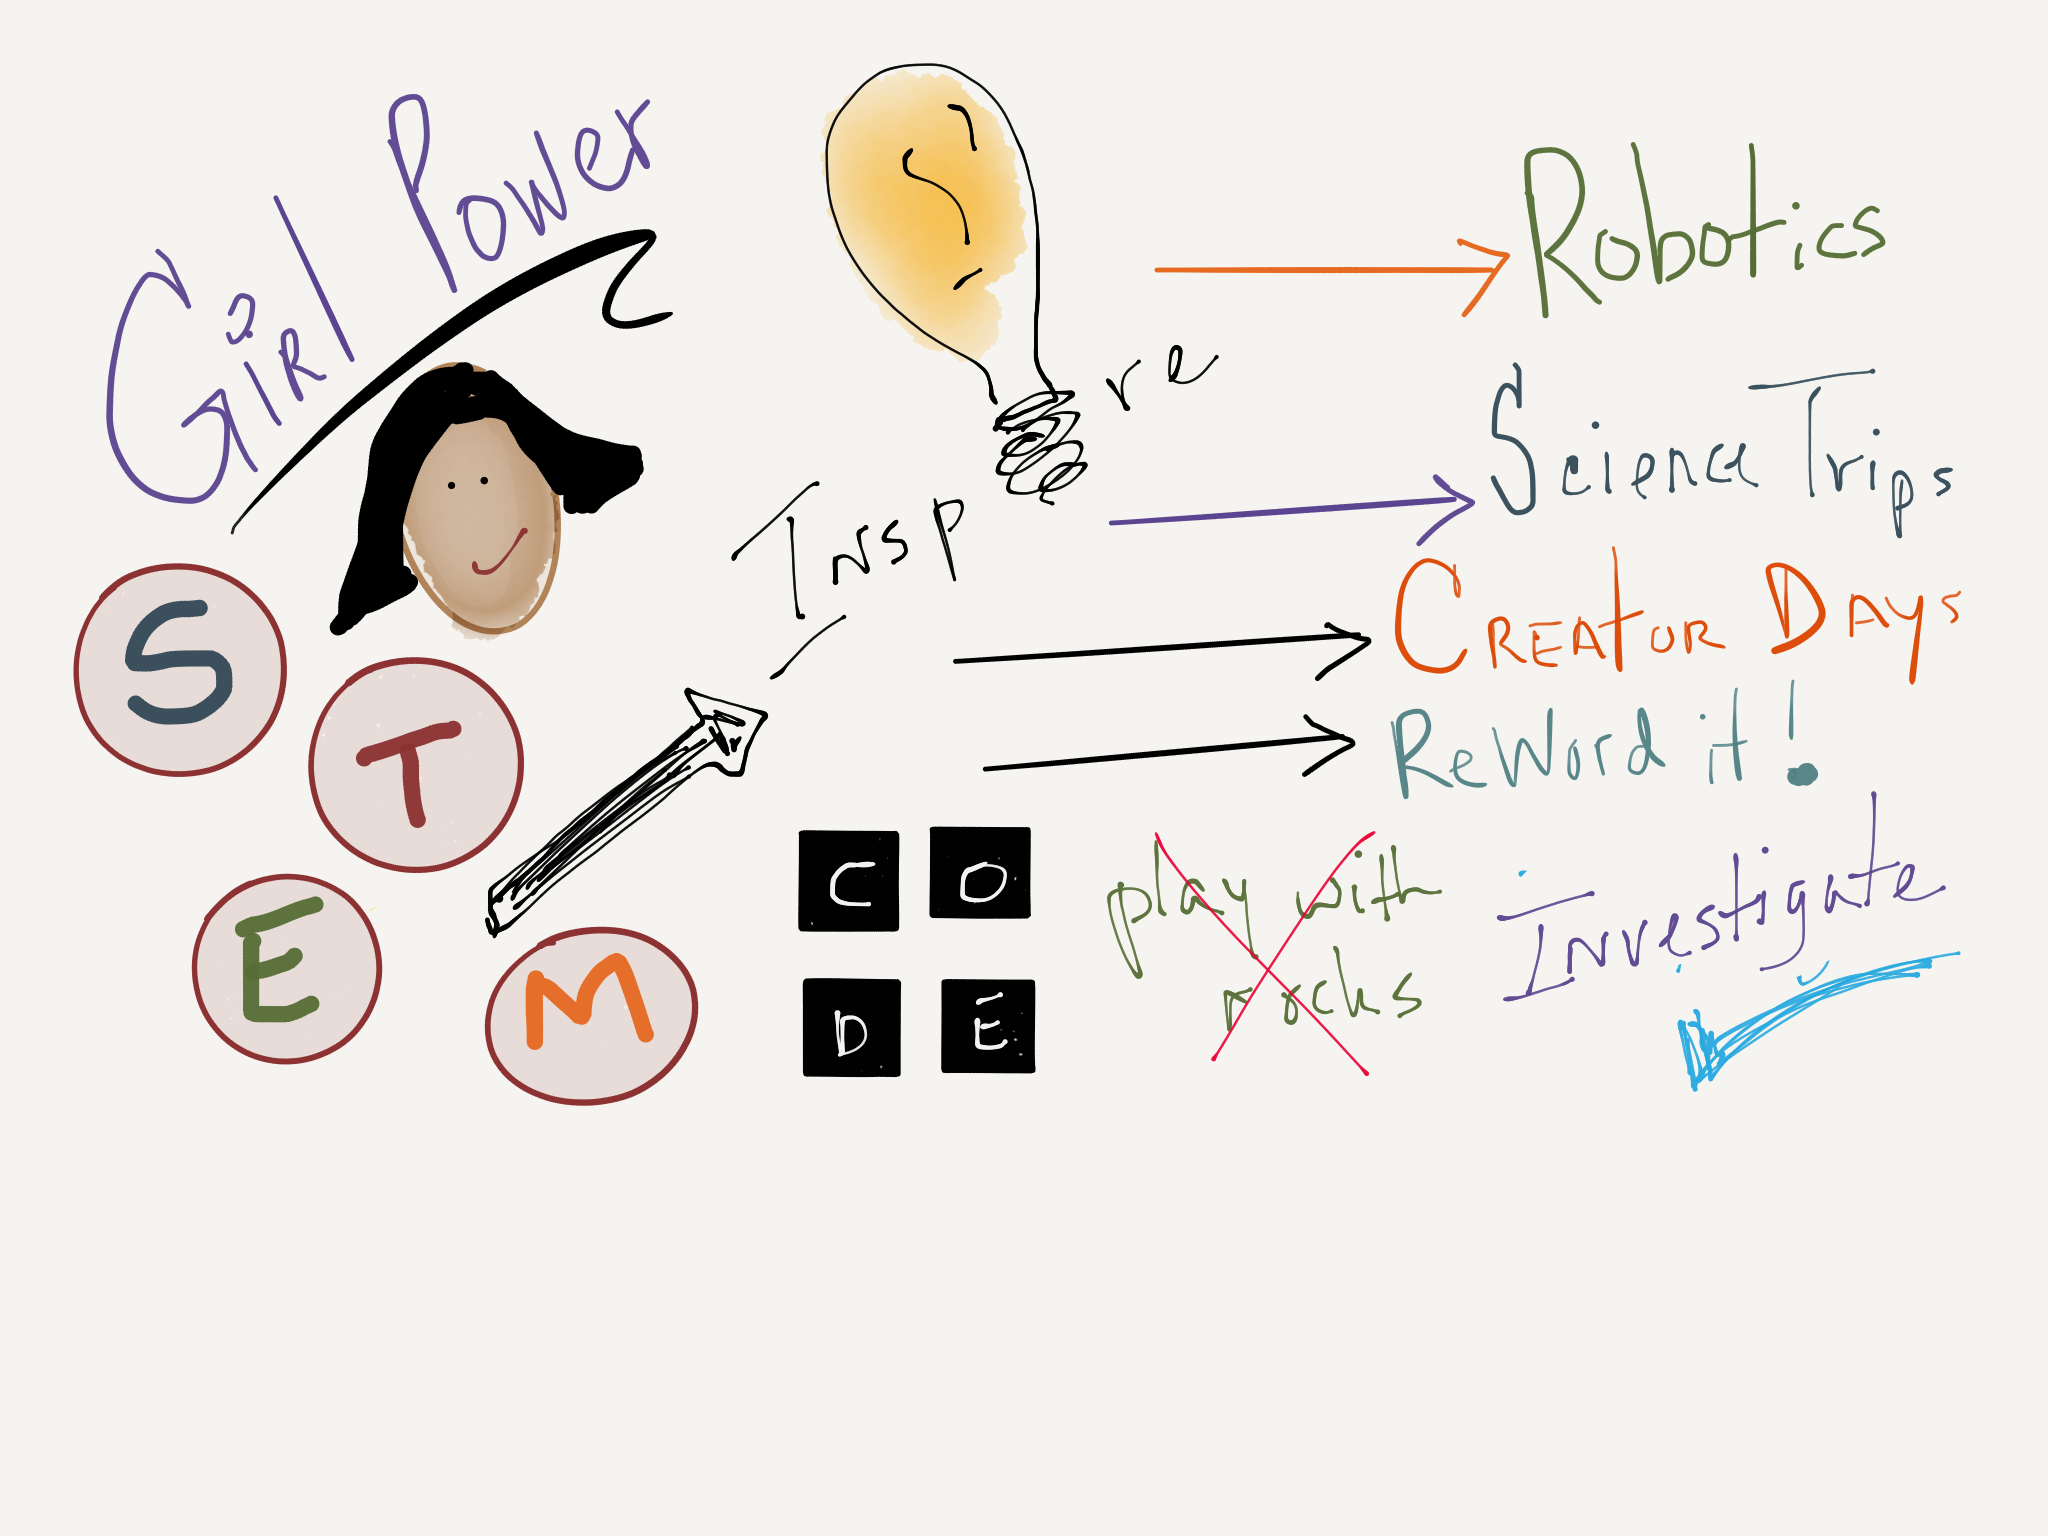 Girl Power
S
T
E
M
Insp re
Robotics
Science Trips
Creator Days
ReWord it!
C O
D E
play with
rocks
Investigate